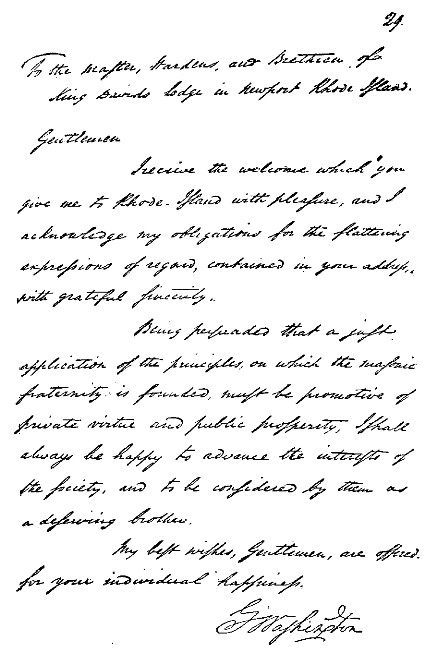 29.
To the Master, Wardens, and Brethren of
King Davids Lodge in Newport Rhode Island.
Gentlemen
I receive the welcome which you
give me to Rhode-Island with pleasure, and I
acknowledge my obligations for the flattering
expressions of regard, contained in your address,
with grateful sincerity.
Being persuaded that a just
application of the principles, on which the masonic
fraternity is founded, must be promotive of
private virtue and public prosperity, I shall
always be happy to advance the interests of
the Society, and to be considered by them as
a deserving brother.
My best wishes, Gentlemen, are offered
for your individual happiness.
G Washington